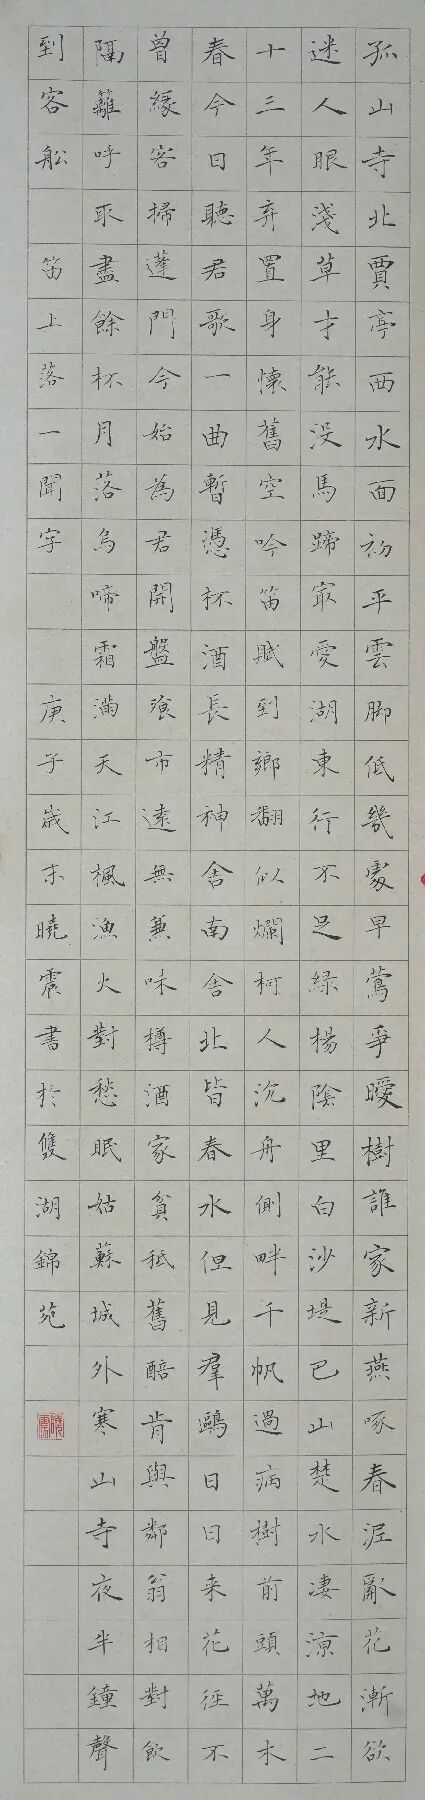 孤山寺北賈亭西水面初平雲脚低幾處早鶯爭暖樹誰家新燕啄春泥亂花漸欲
迷人眼淺草才能没馬蹄最愛湖東行不足緑楊陰里白沙堤巴山楚水凄涼地二
十三年弃置身懷舊空吟笛賦到鄉翻似爛柯人沉舟側畔千帆過病樹前頭萬木
春今日聽君歌一曲暫憑杯酒長精神舍南舍北皆春水但見羣鷗日日来花徑不
曾緣客掃蓬門今始為君開盤飧市遠無兼味樽酒家貧秖舊醅肯與鄰翁相對飲
隔籬呼取盡餘杯月落烏啼霜滿天江楓漁火對愁眠姑蘇城外寒山寺夜半鐘聲
到客船 笛上落一聞字 庚子歲末曉震書於雙湖錦苑